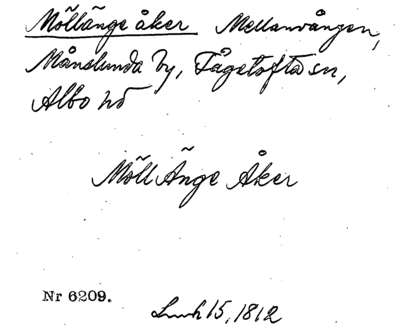 Möllänge åker Mellanvången,
Månslunda by, Fågeltofta sn,
Albo hd
Möll Änge Åker
Nr 6209.
15, 1812